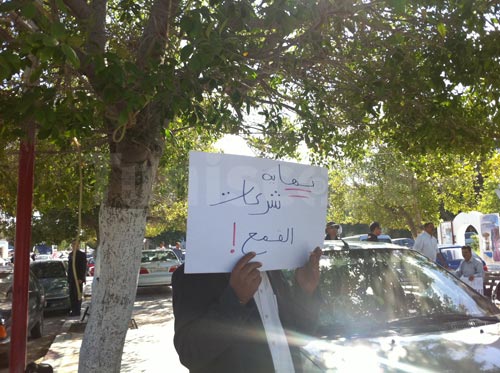 نهاية
شركات
القمع !